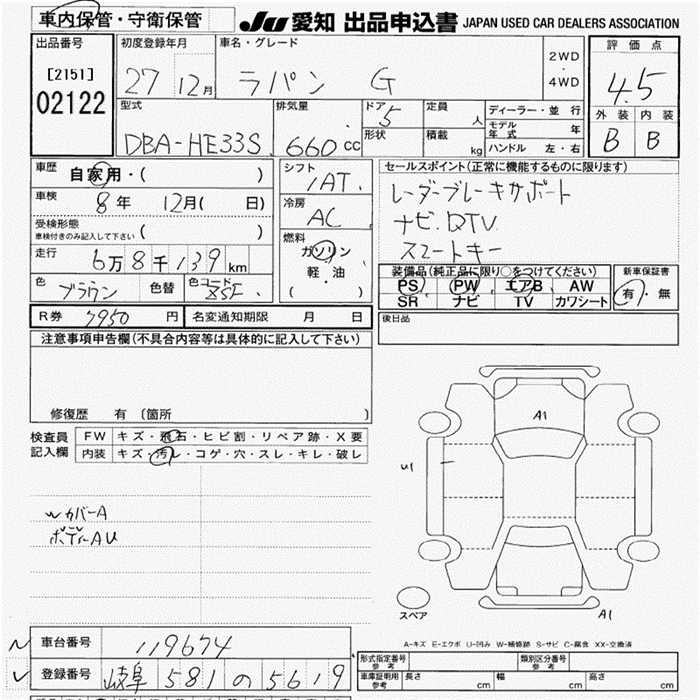 車内保管・守衛保管 JU 愛知 出品申込書 JAPAN USED CAR DEALERS ASSOCIATION
出品番号 [2151] 02122
初度登録年月 27 12月
車名・グレード ラパン G
2WD・4WD
評価点 4.5
外装 内装
B B
型式 DBA-HE33S
排気量 660 cc
ドア 5
形状
定員 人
積載 kg
ディーラー・並行
モデル年式 年
ハンドル 左・右
車歴 自家用・( )
車検 8年 12月( 日)
受検形態
車検付きのみ記入して下さい ( )
走行 6万8千139km
色 ブラウン 色替 色コード ZSF
シフト IAT
冷房 AC
燃料
ガソリン
軽・油
( )
セールスポイント(正常に機能するものに限ります)
レーダーブレーキサポート
ナビ.DTV
スマートキー
装備品(純正品に限り○をつけてください)
PS PW エアB AW
SR ナビ TV カワシート
新車保証書
有・無
R券 7950 円 名変通知期限 月 日
後日品
注意事項申告欄(不具合内容等は具体的に記入して下さい)
修復歴 有 〔箇所 〕
検査員 FW キズ・飛石・ヒビ割・リペア跡・X要
記入欄 内装 キズ・汚レ・コゲ・穴・スレ・キレ・破レ
wカバーA
ボデーAU
A1
U1
スペア
A1
A-キズ E-エクボ U-凹み W-補修跡 S-サビ C-腐食 XX-交換済
車台番号 119674
登録番号 岐阜 581 の 5619
形式指定番号 参考
類別区分番号 参考
車庫証明用 参考 長さ cm 幅 cm 高さ cm